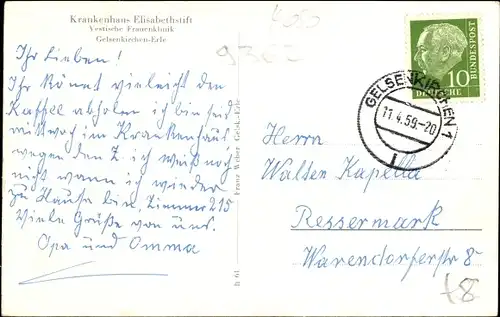 Krankenhaus Elisabethstift
Vestische Frauenklinik
Gelsenkirchen-Erle
Ihr Lieben!
Ihr könnt vielleicht den
Kaffel abholen ich bin seid
mittwoch im Krankenhaus
wegen den Z. ich weiß noch
nicht wann ich wieder
zu Hause bin Zimmer 215
Viele Grüße von uns.
Opa und Omma
Franz Weber, Gelsk.-Erle
B 61
DEUTSCHE
BUNDESPOST
10
GELSENKIRCHEN 1
11.4.59.-20
Herrn
Walden Kapella
Ressermark
Warendorferstr 8